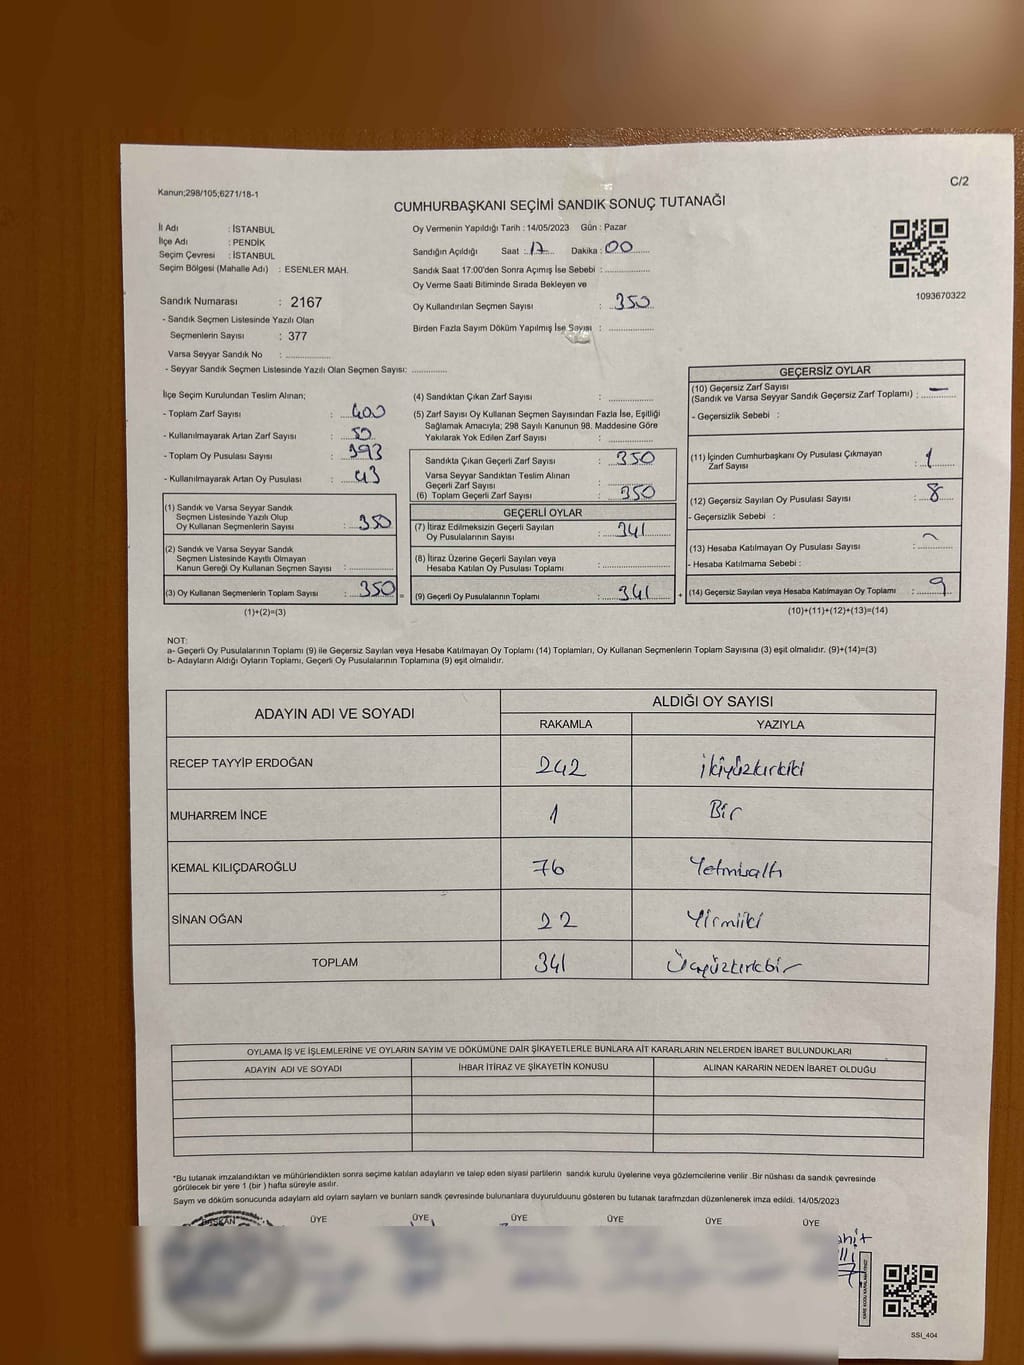 Kanun;298/105;6271/18-1
C/2
CUMHURBAŞKANI SEÇİMİ SANDIK SONUÇ TUTANAĞI
İl Adı : İSTANBUL
İlçe Adı : PENDİK
Seçim Çevresi : İSTANBUL
Seçim Bölgesi (Mahalle Adı) : ESENLER MAH.
Sandık Numarası : 2167
- Sandık Seçmen Listesinde Yazılı Olan
Seçmenlerin Sayısı : 377
Varsa Seyyar Sandık No : ..............
- Seyyar Sandık Seçmen Listesinde Yazılı Olan Seçmen Sayısı: ............
Oy Vermenin Yapıldığı Tarih : 14/05/2023 Gün : Pazar
Sandığın Açıldığı Saat : 17 Dakika : 00
Sandık Saat 17:00'den Sonra Açımış İse Sebebi : ..............
Oy Verme Saati Bitiminde Sırada Bekleyen ve
Oy Kullandırılan Seçmen Sayısı : 350
Birden Fazla Sayım Döküm Yapılmış İse Sayısı : ..............
1093670322
İlçe Seçim Kurulundan Teslim Alınan;
- Toplam Zarf Sayısı : 400
- Kullanılmayarak Artan Zarf Sayısı : 50
- Toplam Oy Pusulası Sayısı : 393
- Kullanılmayarak Artan Oy Pusulası : 43
(1) Sandık ve Varsa Seyyar Sandık
Seçmen Listesinde Yazılı Olup
Oy Kullanan Seçmenlerin Sayısı : 350
(2) Sandık ve Varsa Seyyar Sandık
Seçmen Listesinde Kayıtlı Olmayan
Kanun Gereği Oy Kullanan Seçmen Sayısı : ..............
(3) Oy Kullanan Seçmenlerin Toplam Sayısı : 350 =
(1)+(2)=(3)
(4) Sandıktan Çıkan Zarf Sayısı : ..............
(5) Zarf Sayısı Oy Kullanan Seçmen Sayısından Fazla İse, Eşitliği
Sağlamak Amacıyla; 298 Sayılı Kanunun 98. Maddesine Göre
Yakılarak Yok Edilen Zarf Sayısı : ..............
Sandıkta Çıkan Geçerli Zarf Sayısı : 350
Varsa Seyyar Sandıktan Teslim Alınan
Geçerli Zarf Sayısı : ..............
(6) Toplam Geçerli Zarf Sayısı : 350
GEÇERLİ OYLAR
(7) İtiraz Edilmeksizin Geçerli Sayılan
Oy Pusulalarının Sayısı : 341
(8) İtiraz Üzerine Geçerli Sayılan veya
Hesaba Katılan Oy Pusulası Toplamı : ..............
(9) Geçerli Oy Pusulalarının Toplamı : 341 +
GEÇERSİZ OYLAR
(10) Geçersiz Zarf Sayısı
(Sandık ve Varsa Seyyar Sandık Geçersiz Zarf Toplamı) : —
- Geçersizlik Sebebi :
(11) İçinden Cumhurbaşkanı Oy Pusulası Çıkmayan
Zarf Sayısı : 1
(12) Geçersiz Sayılan Oy Pusulası Sayısı : 8
- Geçersizlik Sebebi :
(13) Hesaba Katılmayan Oy Pusulası Sayısı : —
- Hesaba Katılmama Sebebi :
(14) Geçersiz Sayılan veya Hesaba Katılmayan Oy Toplamı : 9
(10)+(11)+(12)+(13)=(14)
NOT:
a- Geçerli Oy Pusulalarının Toplamı (9) ile Geçersiz Sayılan veya Hesaba Katılmayan Oy Toplamı (14) Toplamları, Oy Kullanan Seçmenlerin Toplam Sayısına (3) eşit olmalıdır. (9)+(14)=(3)
b- Adayların Aldığı Oyların Toplamı, Geçerli Oy Pusulalarının Toplamına (9) eşit olmalıdır.
ADAYIN ADI VE SOYADI
ALDIĞI OY SAYISI
RAKAMLA YAZIYLA
RECEP TAYYİP ERDOĞAN 242 ikiyüzkırkiki
MUHARREM İNCE 1 Bir
KEMAL KILIÇDAROĞLU 76 Yetmişaltı
SİNAN OĞAN 22 Yirmiiki
TOPLAM 341 Üçyüzkırkbir
OYLAMA İŞ VE İŞLEMLERİNE VE OYLARIN SAYIM VE DÖKÜMÜNE DAİR ŞİKAYETLERLE BUNLARA AİT KARARLARIN NELERDEN İBARET BULUNDUKLARI
ADAYIN ADI VE SOYADI İHBAR İTİRAZ VE ŞİKAYETİN KONUSU ALINAN KARARIN NEDEN İBARET OLDUĞU
*Bu tutanak imzalandıktan ve mühürlendikten sonra seçime katılan adayların ve talep eden siyasi partilerin sandık kurulu üyelerine veya gözlemcilerine verilir .Bir nüshası da sandık çevresinde
görülecek bir yere 1 (bir ) hafta süreyle asılır.
Saym ve döküm sonucunda adaylarn ald oylarn saylarn ve bunlarn sandk çevresinde bulunanlara duyurulduunu gösteren bu tutanak tarafmzdan düzenlenerek imza edildi. 14/05/2023
BAŞKAN ÜYE ÜYE ÜYE ÜYE ÜYE ÜYE
SSI_404